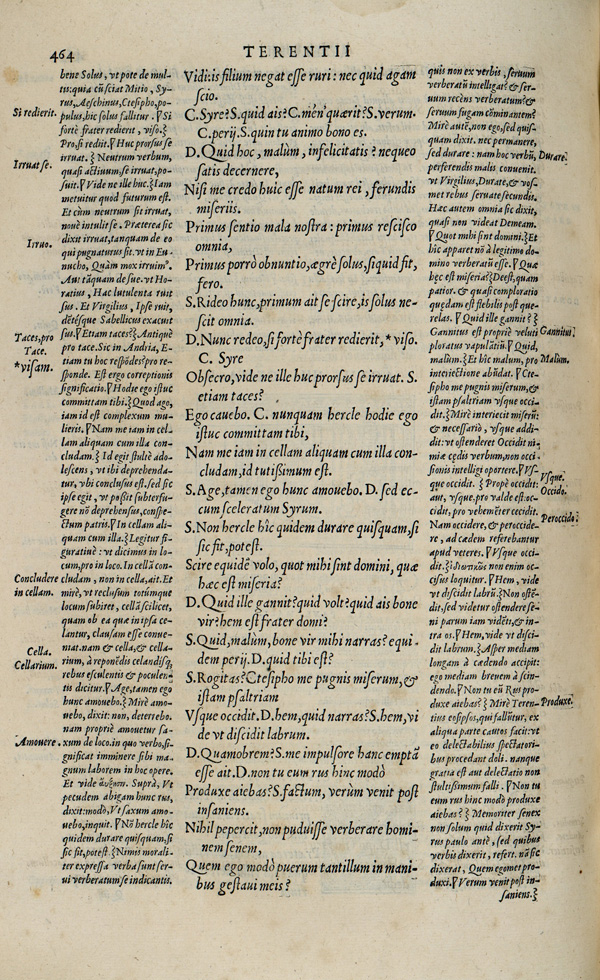 464
TERENTII
bene Solus, vt pote de mul-
tis: quia cū sciat Mitio, Sy-
rus, Aeschinus, Ctesipho, po-
pulus, hic solus fallitur. ∫ Si
Si redierit.
fortè frater redierit, viso.}
Pro, si redit. ∫ Huc prorsus se
Irruat se.
irruat. } Neutrum verbum,
quasi actiuum, se irruat, po-
suit. ∫ Vide ne ille huc. } Iam
metuitur quod futurum est.
Et cùm neutrum sit irruat,
nouè intulit se. Præterea sic
Irruo.
dixit irruat, tanquam de eo
qui pugnaturus sit. vt in Eu-
nucho, Quàm mox irruimꝰ.
Aut tāquam de sue. vt Ho-
ratius, Hac lutulenta ruit
sus. Et Virgilius, Ipse ruit,
dētésque Sabellicus exacuit
Taces, pro
Tace.
sus. ∫ Etiam taces? } Antiquè
pro tace. Sic in Andria, E-
*visam.
tiam tu hoc respōdes? pro re-
sponde. Est ergo correptionis
significatio. ∫ Hodie ego istuc
committam tibi. } Quod ago,
iam id est complexum mu-
lierū. ∫ Nam me iam in cel-
lam aliquam cum illa con-
cludam. } Id egit stultè ado-
lescens, vt ibi deprehenda-
tur, vbi conclusus est. sed sic
ipse egit, vt possit subterfu-
gere nō deprehensus, conspe-
ctum patris. ∫ In cellam ali-
quam cum illa. } Legitur fi-
guratiuè: vt dicimus in lo-
cum, pro in loco. In cellā con-
Concludere
in cellam.
cludam, non in cella, ait. Et
mirè, vt reclusum totúmque
locum subiret, cellā scilicet,
quam ob ea quæ in ipsa ce-
lantur, clausam esse conue-
Cella.
Cellarium.
niat. nam & cella, & cella-
rium, à reponēdis celandisq́;
rebus esculentis & poculen-
tis dicitur. ∫ Age, tamen ego
hunc amouebo. } Mirè amo-
uebo, dixit: non, deterrebo.
nam propriè amouetur sa-
Amouere.
xum de loco. in quo verbo, si-
gnificat imminere sibi ma-
gnum laborem in hoc opere.
Et vide Suprà, Vt
pecudem abigam hunc rus,
dixit: modò, Vt saxum amo-
uebo, inquit. ∫ Nō hercle hîc
quidem durare quisquam, si
sic fit, potest. } Nimis morali-
ter expressa verba sunt ser-
ui verberatum se indicantis.
Vidi: is filium negat esse ruri: nec quid agam
scio.
C. Syre? S. quid ais? C. mén' quærit? S. verum.
C. perij. S. quin tu animo bono es.
D. Quid hoc, malùm, infelicitatis? nequeo
satis decernere,
Nisi me credo huic esse natum rei, ferundis
miseriis.
Primus sentio mala nostra: primus rescisco
omnia,
Primus porrò obnuntio, ægrè solus, si quid fit,
fero.
S. Rideo hunc, primum ait se scire, is solus ne-
scit omnia.
D. Nunc redeo, si fortè frater redierit, * viso.
C. Syre
Obsecro, vide ne ille huc prorsus se irruat. S.
etiam taces?
Ego cauebo. C. nunquam hercle hodie ego
istuc committam tibi,
Nam me iam in cellam aliquam cum illa con-
cludam, id tutißimum est.
S. Age, tamen ego hunc amouebo. D. sed ec-
cum sceleratum Syrum.
S. Non hercle hîc quidem durare quisquam, si
sic fit, potest.
Scire equidē volo, quot mihi sint domini, quæ
hæc est miseria?
D. Quid ille gannit? quid volt? quid ais bone
vir? hem est frater domi?
S. Quid, malùm, bone vir mihi narras? equi-
dem perij. D. quid tibi est?
S. Rogitas? Ctesipho me pugnis miserum, &
istam psaltriam
Vsque occidit. D. hem, quid narras? S. hem, vi
de vt discidit labrum.
D. Quamobrem? S. me impulsore hanc emptā
esse ait. D. non tu eum rus hinc modò
Produxe aiebas? S. factum, verùm venit post
insaniens.
Nihil pepercit, non puduisse verberare homi-
nem senem,
Quem ego modò puerum tantillum in mani-
bus gestaui meis?
quis non ex verbis, seruum
verberatū intelligat? & ser-
uum recens verberatum? &
seruum fugam cōminantem?
Mirè autē, non ego, sed quis-
quam dixit. nec permanere,
Durare.
sed durare: nam hoc verbū,
perferendis malis conuenit.
vt Virgilius, Durate, & vos-
met rebus seruate secundis.
Hac autem omnia sic dixit,
quasi non videat Demeam.
∫ Quot mihi sint domini. } Et
hîc apparet nō à legitimo do-
mino verberatū esse. ∫ Quæ
hæc est miseria? } Deest, quam
patior. & quasi comploratio
quædam est flebilis post que-
relas. ∫ Quid ille gannit? }
Gannitur.
Gannitus est propriè veluti
ploratus vapulātiū. ∫ Quid,
Malùm.
malùm. } Et hîc malum, pro
interiectione aiūdat. ∫ Cte-
sipho me pugnis miserum, &
istam psaltriam vsque occi-
dit. } Mirè interiecit miserū:
& necessariò, vsque addi-
dit: vt ostenderet Occidit ni-
miæ cędis verbum, non occi-
sionis intelligi oportere. ∫ Vs-
Vsque.
Occido.
que occidit. } Propè occidit:
aut, vsque, pro valde est: oc-
cidit, pro vehemēter cecidit.
Peroccido.
Nam occidere, & peroccide-
re, ad cædem referebantur
apud veteres. ∫ Vsque occi-
dit. } non enim oc-
cisus loquitur. ∫ Hem, vide
vt discidit labrū. } Non ostē-
dit, sed videtur ostendere se-
ni parum iam vidēti, & in-
tra os. ∫ Hem, vide vt disci-
dit labrum. } Asper mediam
longam à cædendo accipit:
ego mediam breuem à scin-
dendo. ∫ Non tu eū Rus pro-
Produxe.
duxe aiebas? } Mirè Teren-
tius eos ipsos, qui fallūtur, ex
aliqua parte cautos facit: vt
eo delectabilius spectatori-
bus procedant doli. nanque
gratia est aut delectatio non
stultissimum falli. ∫ Non tu
eum rus hinc modò produxe
aiebas? } Memoriter senex
non solum quid dixerit Sy-
rus paulo antè, sed quibus
verbis dixerit, refert. nā sic
dixerat, Quem egomet pro-
duxi. ∫ Verum venit post in-
saniens. }